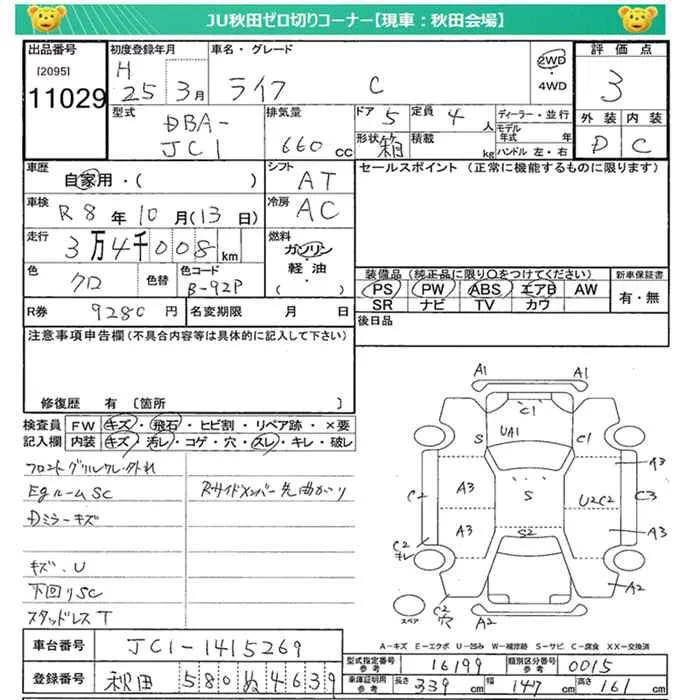 JU秋田ゼロ切りコーナー【現車：秋田会場】
出品番号
[2095]
11029
初度登録年月
H 25 3月
車名・グレード
ライフ C
2WD
・
4WD
評価点
3
外装 内装
D C
型式
DBA-
JC1
排気量
660 cc
ドア 5
定員 4 人
形状 箱
積載 kg
ディーラー・並行
モデル年式 年
ハンドル 左・右
車歴
自家用・( )
シフト
AT
セールスポイント (正常に機能するものに限ります)
車検
R8年10月(13日)
冷房
AC
走行
3万4千008km
燃料
ガソリン
軽油
( )
色
クロ
色替
色コード
B-92P
装備品 (純正品に限り○をつけてください)
PS PW ABS エアB AW
SR ナビ TV カワ
新車保証書
有・無
R券 9280円
名変期限 月 日
後日品
注意事項申告欄 (不具合内容等は具体的に記入して下さい)
修復歴 有 〔箇所 〕
検査員 FW キズ・飛石・ヒビ割・リペア跡・×要
記入欄 内装 キズ・汚レ・コゲ・穴・スレ・キレ・破レ
フロントグリルワレ・外れ
Egルーム SC
Rサイドメンバー先曲がり
Dミラーキズ
キズ.U
下回りSC
スタッドレス T
A1 A1
C1
UA1
S C1
A3
A3 S U2C2 C3
C2
A3 S2 A3
C2
キレ
A2
スペア
C2
穴
A2
A-キズ E-エクボ U-凹み W-補修跡 S-サビ C-腐食 XX-交換済
車台番号 JC1-1415269
型式指定番号 参考 16199
類別区分番号 参考 0015
登録番号 秋田 580 ぬ 4639
車庫証明用 参考 長さ 339 cm 幅 147 cm 高さ 161 cm